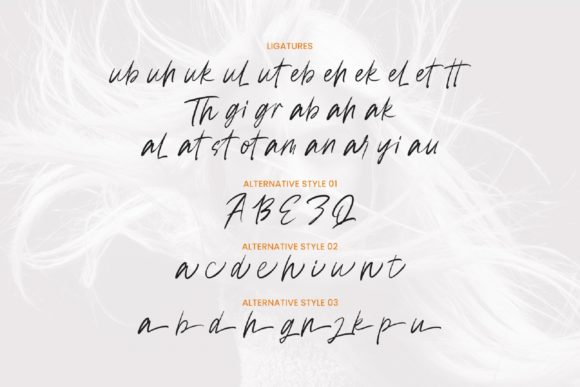 LIGATURES
ub uh uk uL ut eb eh ek eL et tt
Th gi gr ab ah ak
aL at st ot am an ar yi au
ALTERNATIVE STYLE 01
A B E 3 Q
ALTERNATIVE STYLE 02
a c d e h i u w n t
ALTERNATIVE STYLE 03
a b d h g n z k p u